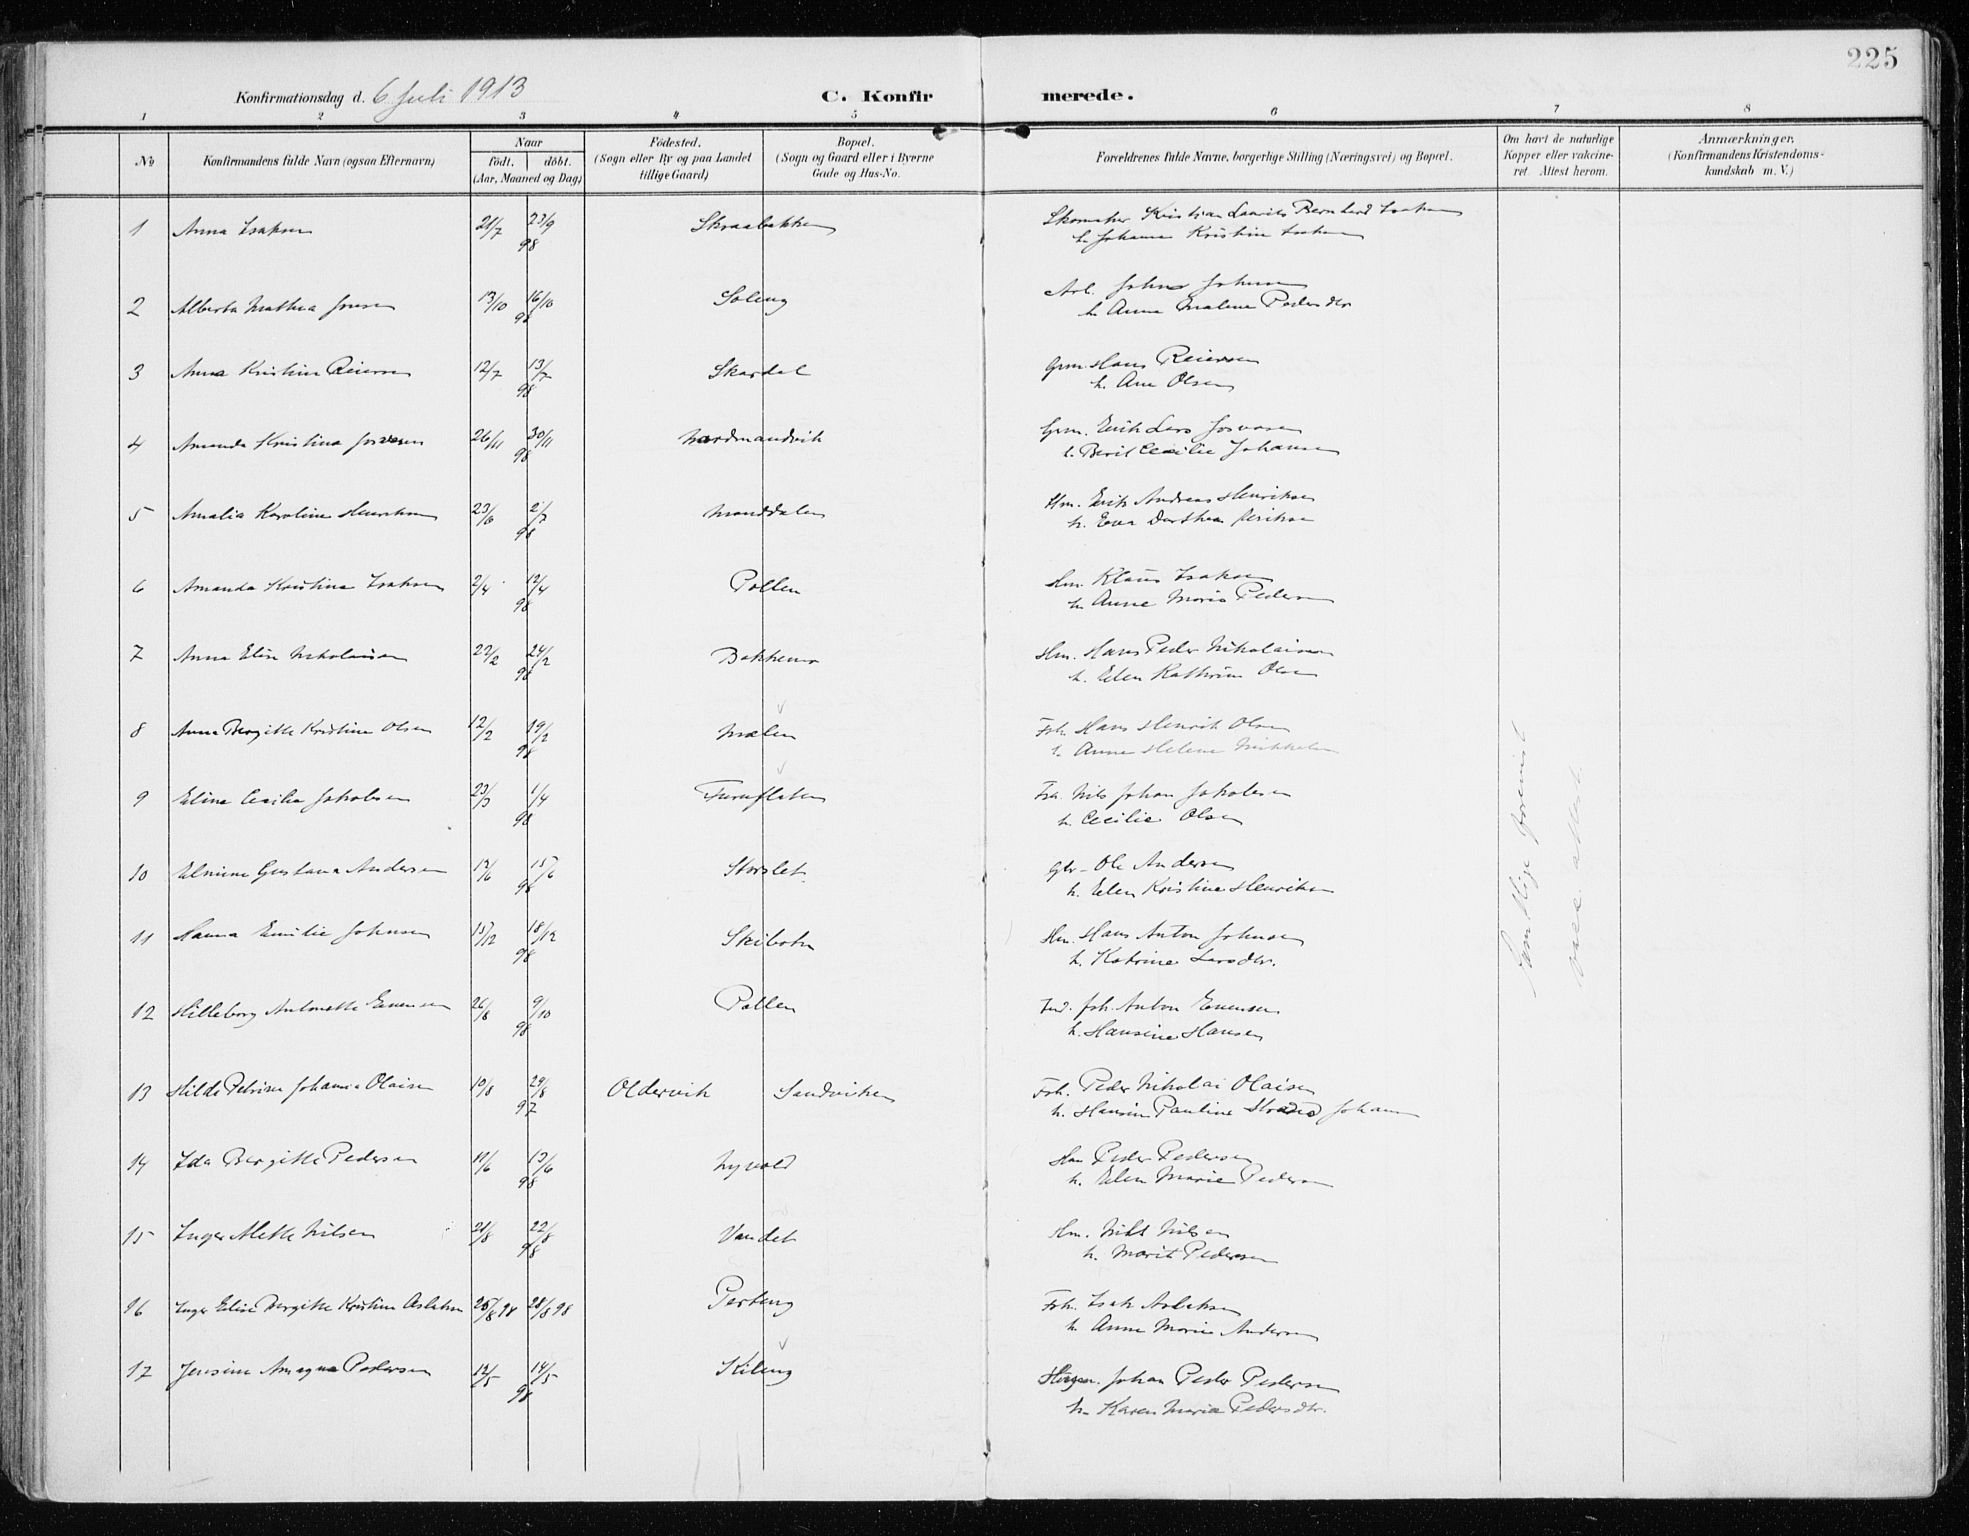 225
Konfirmationsdag d. 6 Juli 1913 C. Konfirmerede.
1 2 3 4 5 6 7 8
No
Konfirmandens fulde Navn (ogsaa Efternavn)
Naar
födt. döbt.
(Aar, Maaned og Dag)
Födested.
(Sogn eller By og paa Landet
tillige Gaard)
Bopæl.
(Sogn og Gaard eller i Byerne
Gade og Hus-No.
Forældrenes fulde Navne, borgerlige Stilling (Næringsvei) og Bopæl.
Om havt de naturlige
Kopper eller vakcine-
ret. Attest herom.
Anmærkninger.
(Konfirmandens Kristendoms-
kundskab m. V.)
1 Anna Isaksen 21/7 23/9 98 Skraabakken Skomaker Kristian Laurits Bernhard Isaksen
h. Johanna Kristine Isaksen
2 Alberta Mathea Jensen 13/10 16/10 98 Soleng Arb. Johns Johnsen
h. Anna Malene Pedersdtr
3 Anna Kristine Reiersen 12/7 13/7 98 Skardal Grm. Hans Reiersen
h. Ane Olsen
4 Amanda Kristina Josvasen 26/11 30/11 98 Nordmandvik Grm. Erik Lars Josvasen
h. Berit Cecilie Johansen
5 Amalia Karoline Henriksen 23/6 2/7 98 Manddalen Hm. Erik Andreas Henriksen
h. Eva Dorthea Eriksen
6 Amanda Kristina Isaksen 2/4 12/4 98 Pollen Hm. Klaus Isaksen
h. Anne Marie Pedersen
7 Anna Elise Nikolaisen 22/2 24/2 98 Bakkemo Hm. Hans Peder Nikolaisen
h. Elen Kathrine Olsen
8 Anna Bergitte Kristine Olsen 12/2 19/2 98 Mælen Frh. Hans Henrik Olsen
h. Anne Helene Mikkelsen
9 Eline Cecilie Jakobsen 23/3 1/4 98 Furuflaten Nils Johan Jakobsen
h. Cecilie Olsen
10 Elmine Gustava Andersen 12/6 15/6 98 Storslet Gbr. Ole Andersen
h. Elen Kristine Henriksen
11 Hanna Emilie Johnsen 15/12 18/12 98 Skibotn Hm. Hans Anton Johnsen
h. Katrine Larsdtr.
12 Hilleborg Antonette Evensen 26/8 9/10 98 Pollen Ind. Joh. Anton Evensen
h. Hansine Hansen
13 Hilda Petrine Johanna Olaisen 10/8 29/8 97 Oldervik Sandviken Frh. Peder Nikolai Olaisen
h. Hansine Pauline Johans
14 Ida Bergitte Pedersen 11/6 13/6 98 Nyvold Hm Peder Pedersen
h. Elen Marie Pedersen
15 Inger Mette Nilsen 21/8 22/8 98 Vandet Hm. Nils Nilsen
h. Marit Pedersen
16 Inger Elise Bergitte Kristine Aslaksen 25/8 98 28/8 98 Perteng Frh. Isak Aslaksen
h. Anne Marie Andersen
17 Jensine Amagna Pedersen 12/5 14/5 98 Kileng Johan Peder Pedersen
h. Karen Maria Pedersdtr.
Samtlige forevist
vac. attest.